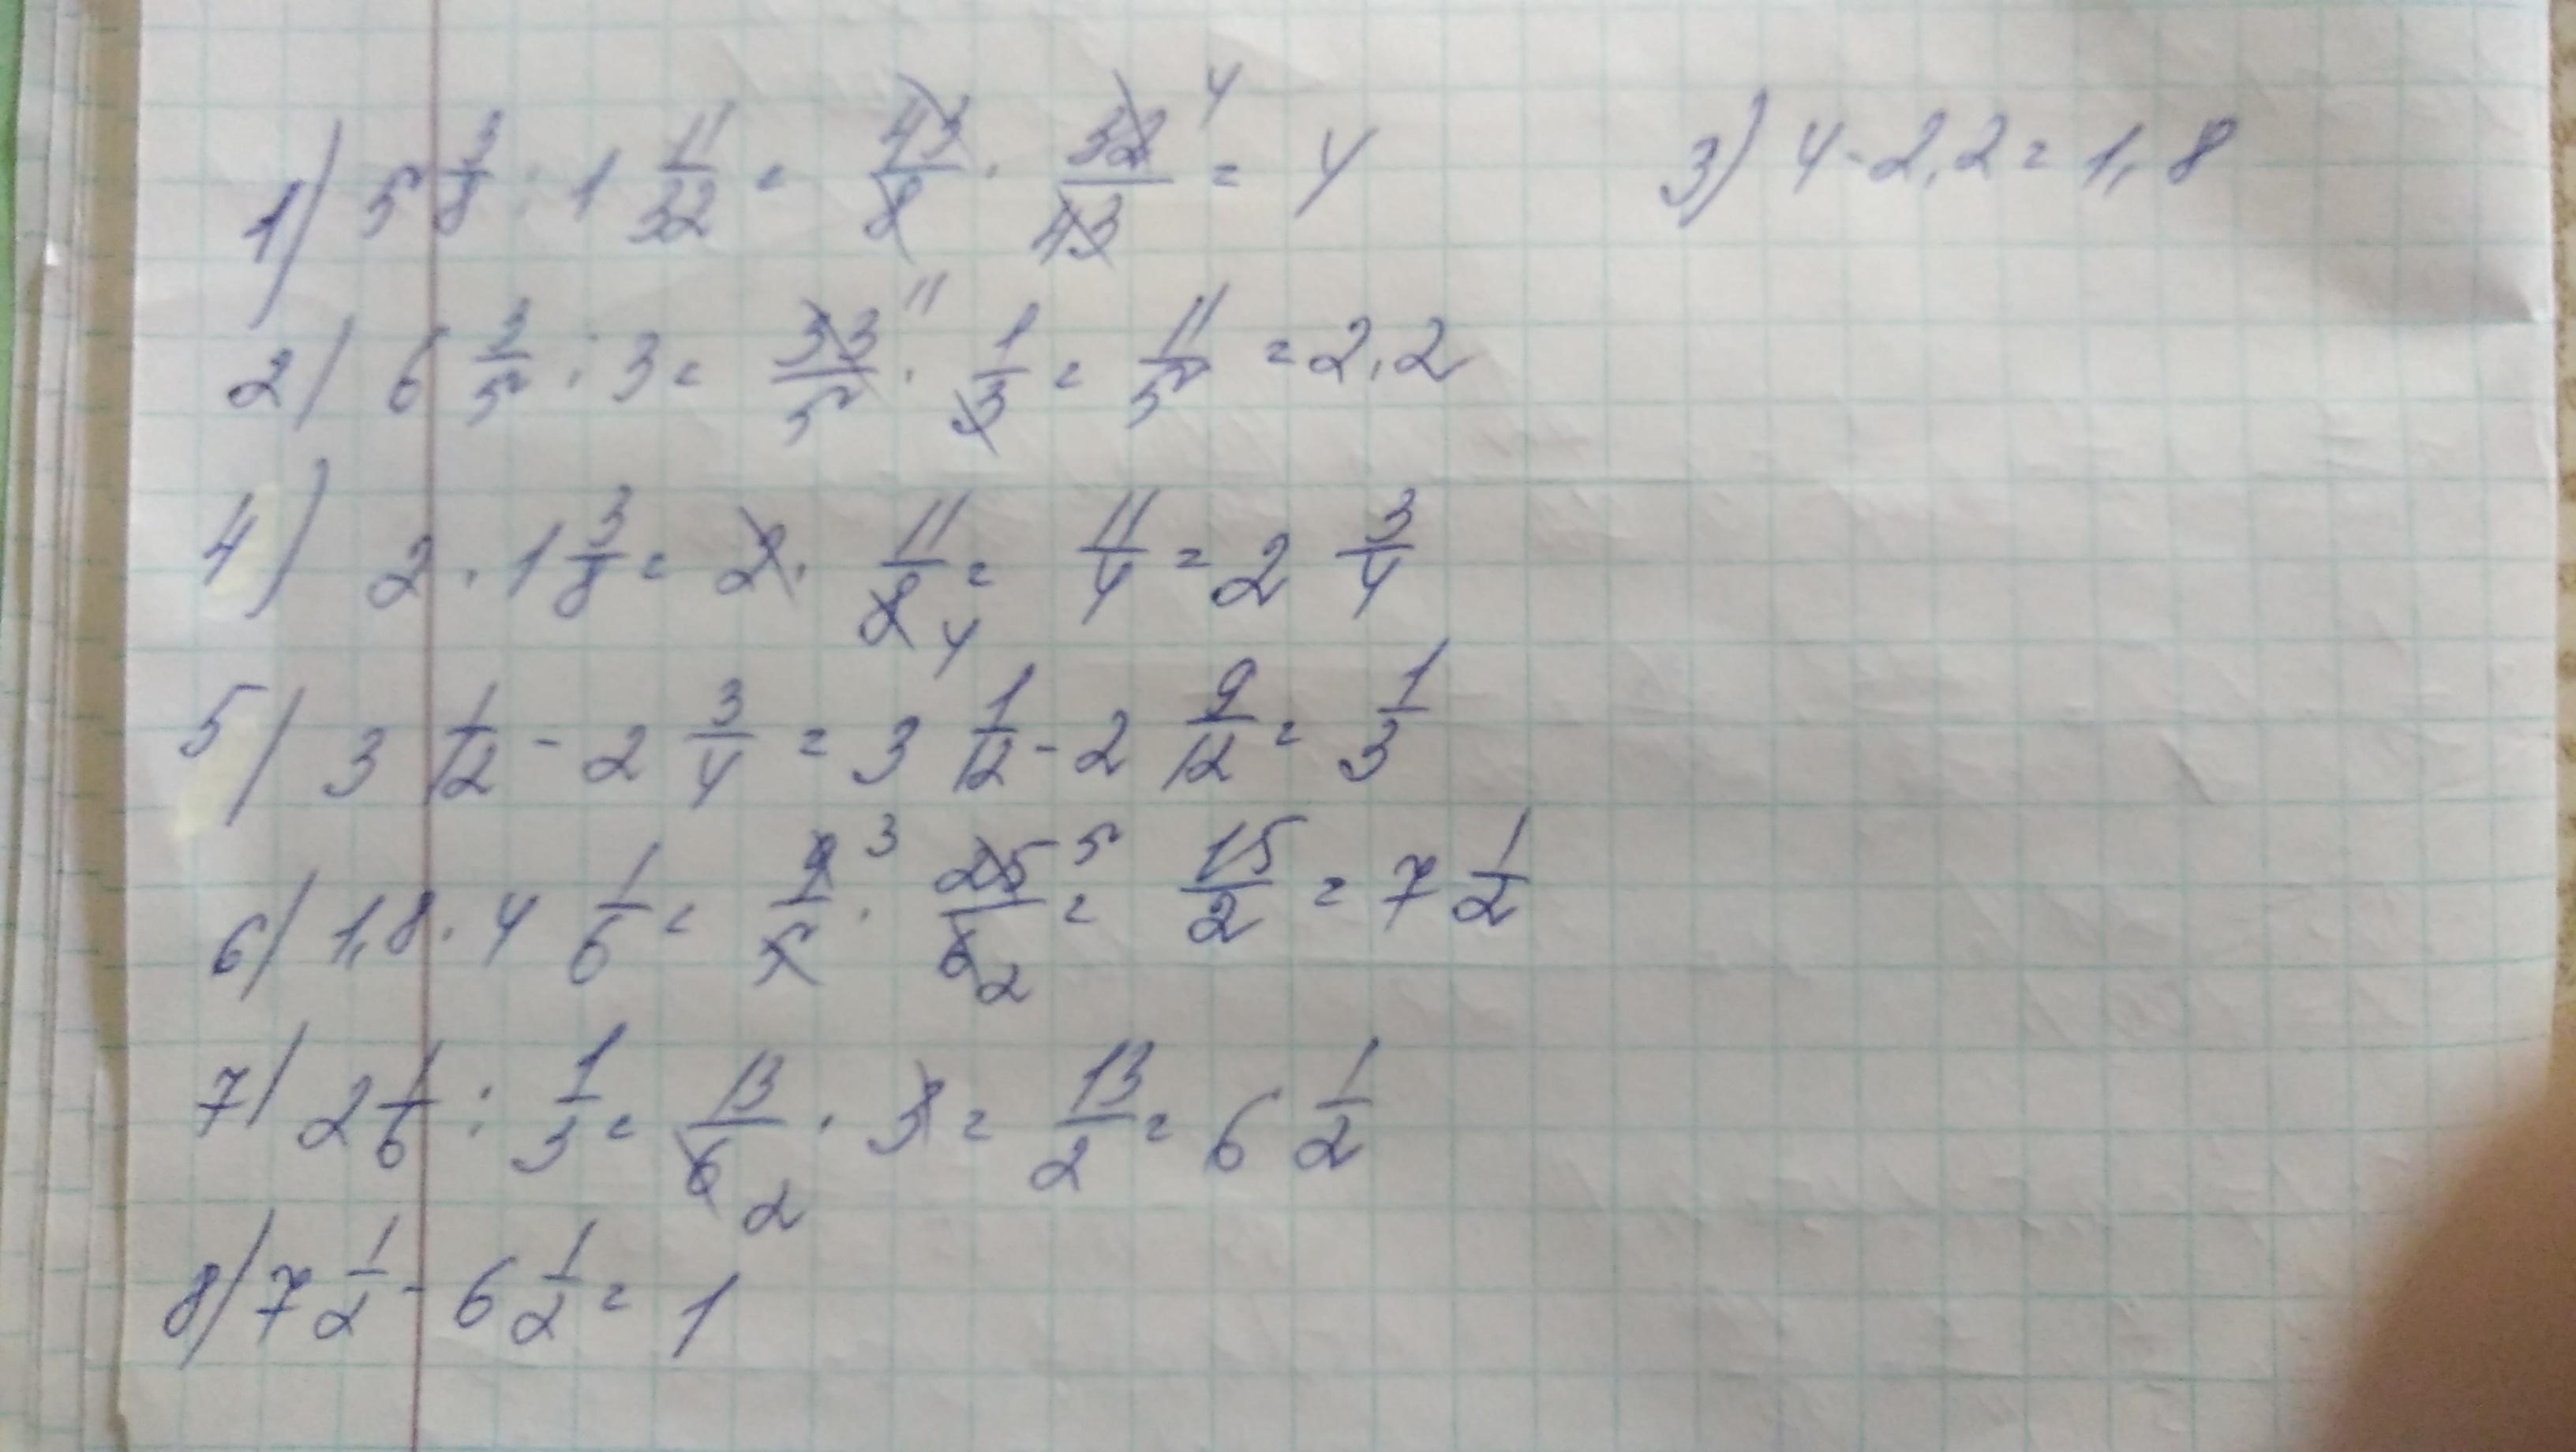 1) 5 3/8 : 1 11/32 = 43/8 · 32/43 4 = 4
3) 4 - 2,2 = 1,8
2) 6 3/5 : 3 = 33/5 11 · 1/3 = 11/5 = 2,2
4) 2 · 1 3/8 = 2 · 11/8 4 = 11/4 = 2 3/4
5) 3 1/12 - 2 3/4 = 3 1/12 - 2 9/12 = 1/3
6) 1,8 · 4 1/6 = 9/5 3 · 25/6 5 2 = 15/2 = 7 1/2
7) 2 1/6 : 1/3 = 13/6 2 · 3 = 13/2 = 6 1/2
8) 7 1/2 - 6 1/2 = 1